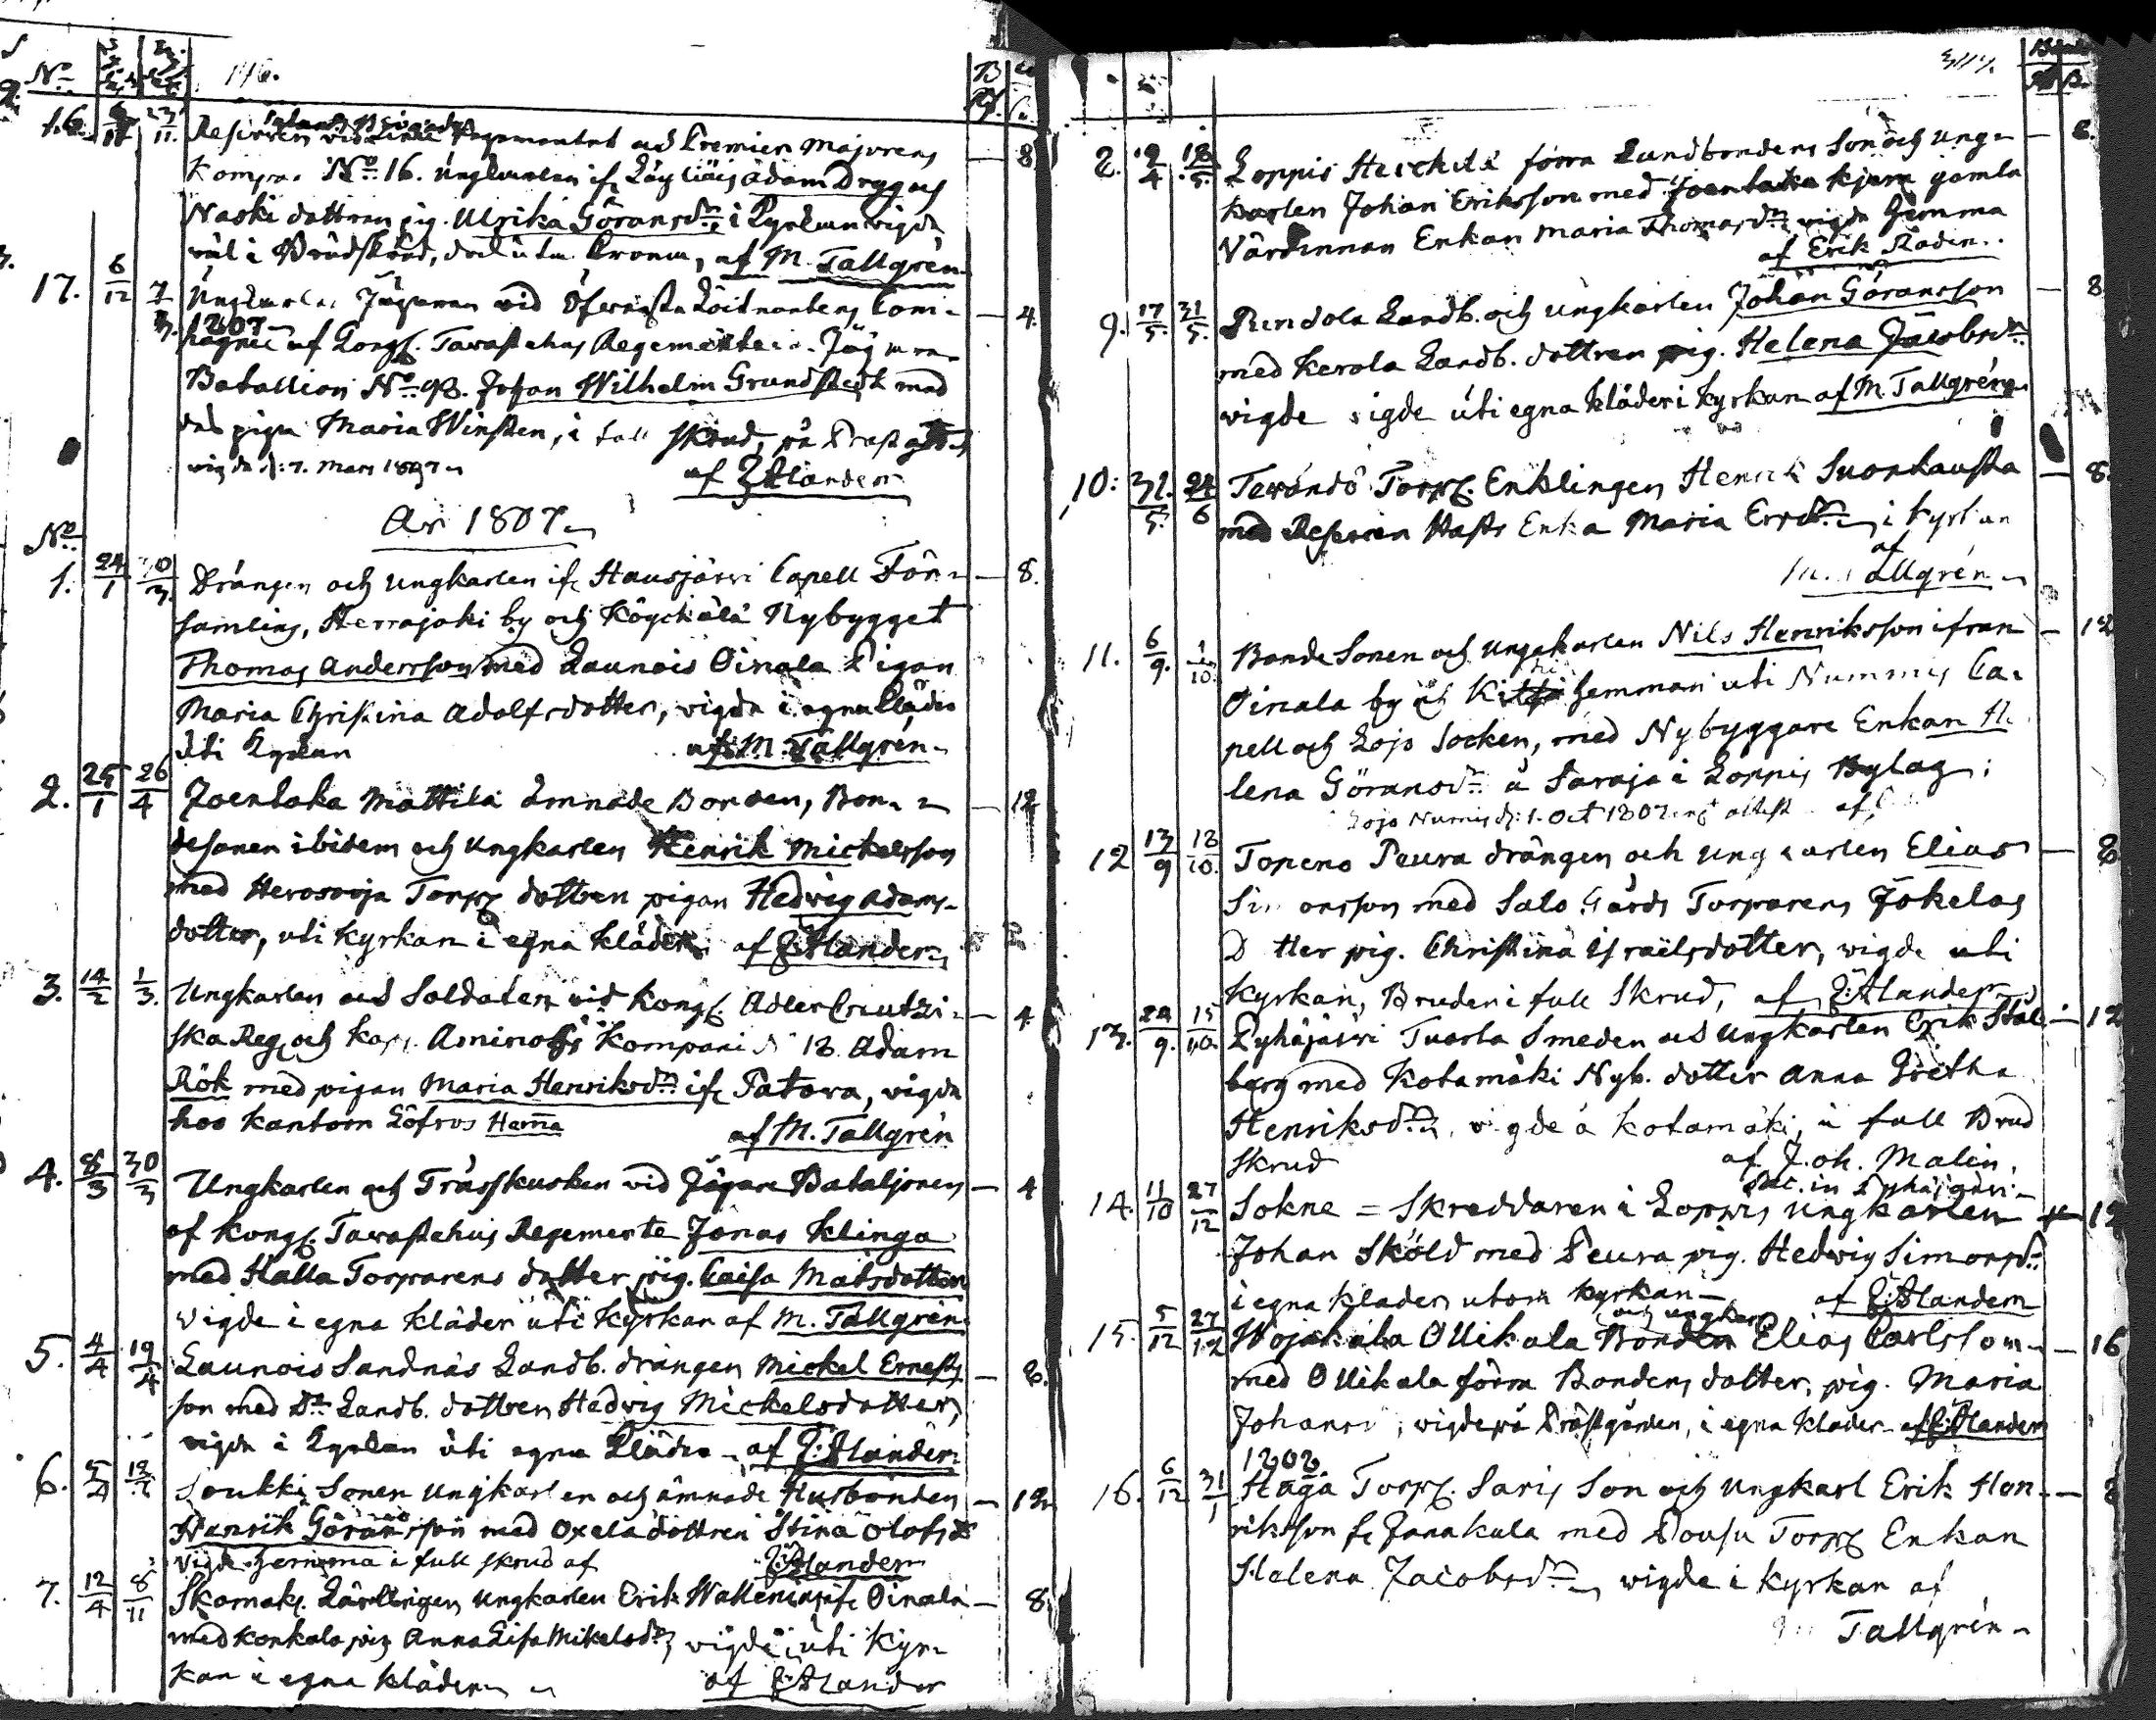 No
16. 23/11. Reserven wid Regementet och Premier Majorens — 8
Komp. No 16. Ungkarlen ifr Adam Drygus
Naski dottren pig. Ulrika Göransdr, i Kyrkan wigda
väl i Brudskrud, doch utan Crona, af M. Tallgrén
17. 6/12 7/3. Jägaren vid Öfwersta Löitnantens Com- — 4.
1807
pagnie af Kongl. Tavastehus Regementets Jägare
Batallion No 98. Johan Wilhelm Grundstedt med
pigan Maria Winsten, i full skrud, på Prästgård
wigda d: 7. Mars 1807 af E: Alander
År 1807
No
1. 24/1 Drängen och Ungkarlen ifr Hausjärwi Capell För- — 8.
samling, Herrajoki by och Köyckälä Nybygget
Thomas Andersson med Launois Oinala Pigan
Maria Christina Adolfsdotter, vigda i egna kläder
uti Kyrkan af M. Tallgrén
2. 25/1 26/4 Joentaka Mattila ämnade Bonden, Bon- — 12
desonen ibidem och Ungkarlen Henrik Mickelsson
med Herosoja Torp: dottren pigan Hedwig Adams-
dotter, uti Kyrkan i egna kläder af E: Alander
3. 14/2 1/3. Ungkarlen och Soldaten vid Kongl. Adler Creutzi- — 4
ska Reg. och Kap. Aminoffs Kompani N 18. Adam
Rök med pigan Maria Henriksdr ifr Patova, vigda
hos Kantorn Löfros Hemma af M. Tallgrén
4. 8/3 30/3 Ungkarlen och Trässkusken vid Jägare Bataljonen — 4
af Kongl. Tavastehus Regemente Jonas Klinga
med Halla Torparens dotter pig. Caisa Matsdotter
vigde i egna kläder uti Kyrkan af M. Tallgrén
5. 4/4 19/4 Launois Sandnäs Landb. drängen Mickel Ernests — 8.
son med Do Landb. dottren Hedvig Mickelsdotter,
vigda i Kyrkan uti egna kläder af E: Alander
6. 5/4 Soukki Sonen Ungkarlen och ämnade Husbonden — 12
Henrik Göransson med Oxela dottren Stina Olofsd
vigde hemma i full skrud af E: Alander
7. 12/4 8/11 Skomak. Lärlingen Ungkarlen Erik Wallenius ifr Oinala — 8.
med Konkala pig Anna Lisa Mikelsdr, vigde uti Kyr-
kan i egna kläder af E: Alander
8. 12/4 18/5. Loppis Herckälä förra Landbondens Son och Ung- — 8.
karlen Johan Eriksson med Joentaka gamla
Värdinnan Enkan Maria Thomasdr, vigda hemma
af Erik
9. 17/5. 31/5. Pundola Landb. och Ungkarlen Johan Göransson — 8
med Kerola Landb. dottren pig. Helena Jacobsdr
wigde uti egna kläder i Kyrkan af M. Tallgrén
10: 31/5. 24/6 Tervando Torp. Enklingen Henrik Suonkausta — 8.
med Reserven Hafts Enka Maria Ersdr, i Kyrkan
af
M. Tallgrén
11. 6/9. 1/10. Bonde Sonen och Ungakarlen Nils Henriksson ifrån — 12
Oinala by och hemman uti Nummis Ca-
pell och Lojo Socken, med Nybyggare Enkan He
lena Göransdr å Saraja i Loppis Bylag;
Lojo Numis d: 1. Oct 1807 attest af
12 13/9 18/10. Topeno Peura drängen och Ungkarlen Elias — 8
Simonsson med Salo Gårds Torparens Jokelas
Dotter pig. Christina Israelsdotter, wigde uti
Kyrkan, Bruden i full Skrud, af E: Alander
13. 20/9. 15/10. Pyhäjärvi Tuorla Smeden och Ungkarlen Erik Stål — 12
berg med Kotamäki Nyb. dotter Anna Gretha
Henriksdr, vigde å Kotamäki, i full Brud
skrud af Joh. Malin,
Sac. in Pyhäjärvi
14. 11/10 27/12 Sokne = Skreddaren i Loppis Ungkarlen — 12
Johan Sköld med Peura pig. Hedwig Simonsd
i egna kläder utom Kyrkan — af E: Alander
och ungkarl
15. 5/12 27/12 Wojakala Ollikala Bonden Elias Carlsson — 16
med Ollikala förra Bondens dotter, pig. Maria
Johansd, vigde på Prästgården, i egna kläder af E: Alander
1808
16. 6/12 31/1 Haga Torp. Saris Son och Ungkarl Erik Hen- — 8
riksson fr Janakala med Pousu Torp. Enkan
Helena Jacobsdr, wigda i Kyrkan af
Tallgrén